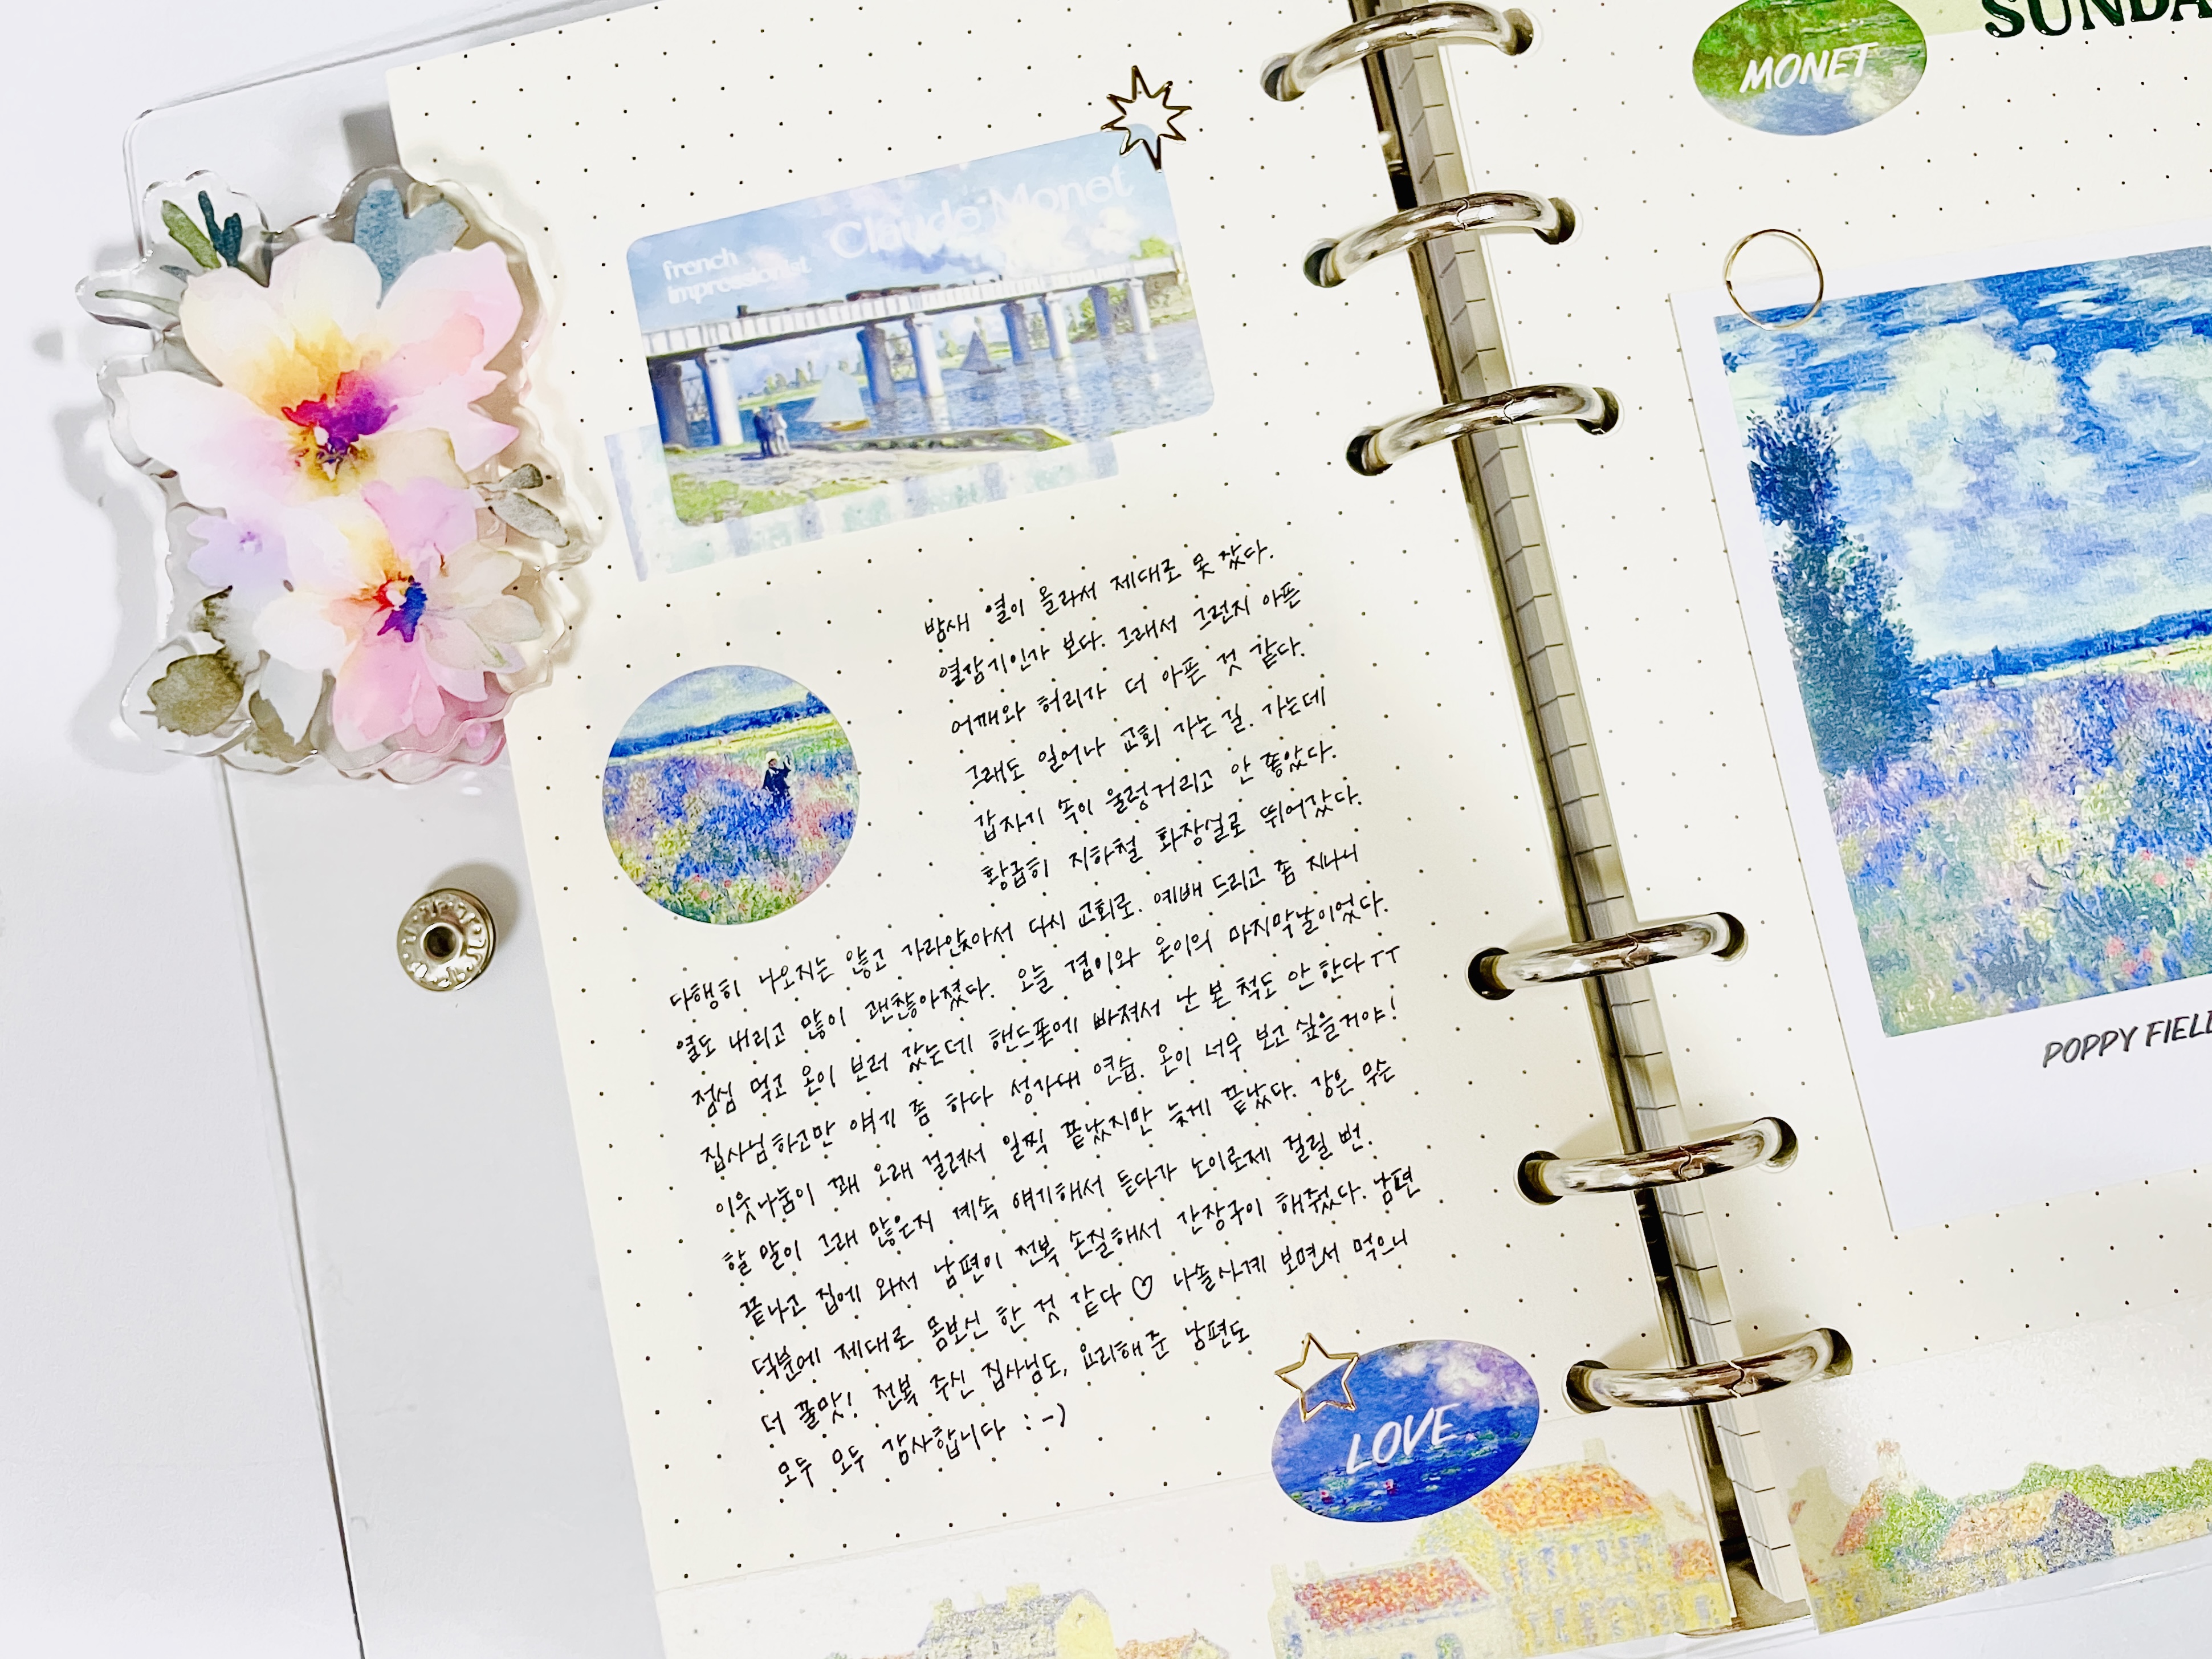 french
impressionist
Claude Monet
밤새 열이 올라서 제대로 못 잤다.
열감기인가 보다. 그래서 그런지 아픈
어깨와 허리가 더 아픈 것 같다.
그래도 일어나 교회 가는 길. 가는데
갑자기 속이 울렁거리고 안 좋았다.
황급히 지하철 화장실로 뛰어갔다.
다행히 나오지는 않고 가라앉아서 다시 교회로. 예배 드리고 좀 지나니
열도 내리고 많이 괜찮아졌다. 오늘 겸이와 온이의 마지막날이었다.
점심 먹고 온이 보러 갔는데 핸드폰에 빠져서 난 본 척도 안 한다 ㅜㅜ
집사님하고만 얘기 좀 하다 성가대 연습. 온이 너무 보고 싶을거야!
이웃나눔이 꽤 오래 걸려서 일찍 끝났지만 늦게 끝났다. 강은 무슨
할 말이 그래 많은지 계속 얘기해서 듣다가 노이로제 걸릴 뻔.
끝나고 집에 와서 남편이 전복 손질해서 간장국이 해줬다. 남편
덕분에 제대로 몸보신 한 것 같다 ♡ 나솔사계 보면서 먹으니
더 꿀맛! 전복 주신 집사님도, 요리해 준 남편도
모두 모두 감사합니다 :-)
LOVE
MONET
SUNDA
POPPY FIELD